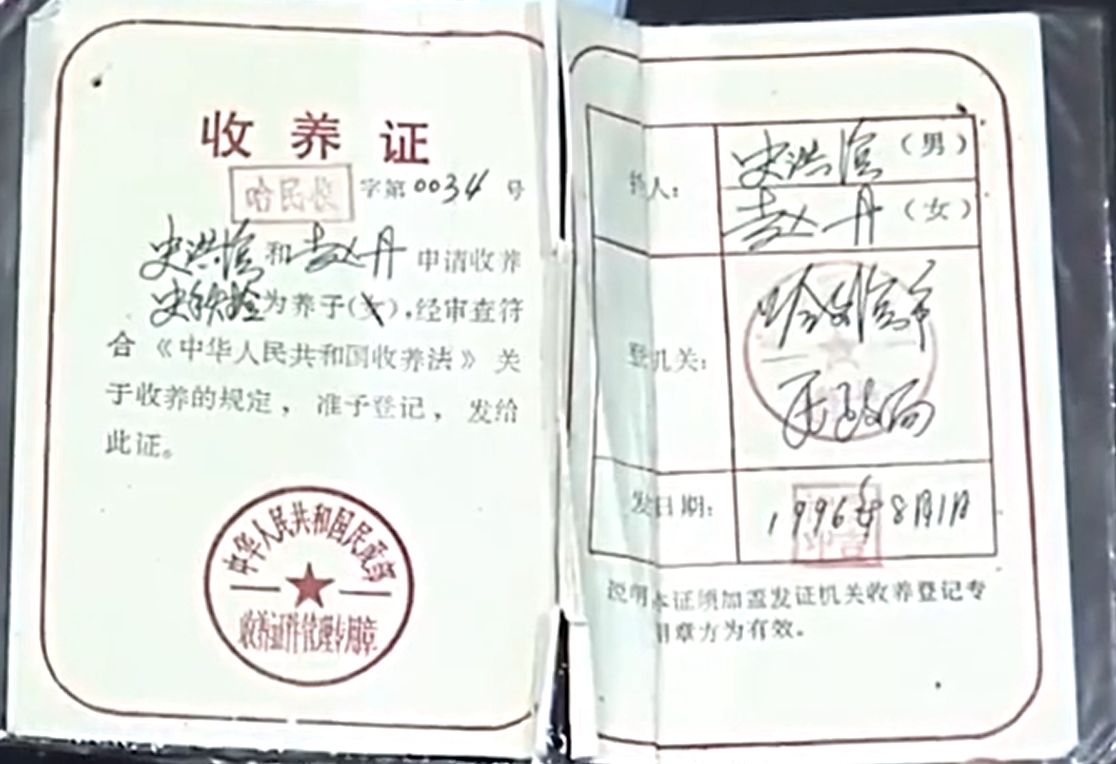 收养证
哈民收 字第0034号
史洪滨和赵丹申请收养
史秩为养子(女),经审查符
合《中华人民共和国收养法》关
于收养的规定,准予登记,发给
此证。
中华人民共和国民政部
收养证件管理专用章
人: 史洪滨(男)
赵丹(女)
登机关: 哈尔滨市
民政局
发日期: 1996年8月1日
说明本证须加盖发证机关收养登记专
用章方为有效。